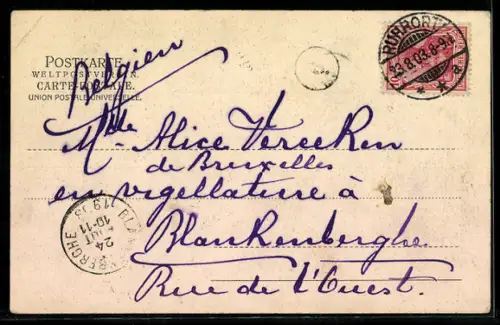 POSTKARTE.
WELTPOSTVEREIN.
CARTE POSTALE.
UNION POSTALE UNIVERSELLE.
Belgien
RUHRORT
23.8.03.8-9
* a
Mlle Alice Vereeken
de Bruxelles
en vigellature à
Blankenberghe
Rue de l'Ouest.
BLANKENBERGHE
24
AOUT
10-11
1903